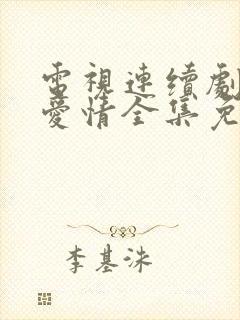 電視連續劇
愛情全集免
李基洙